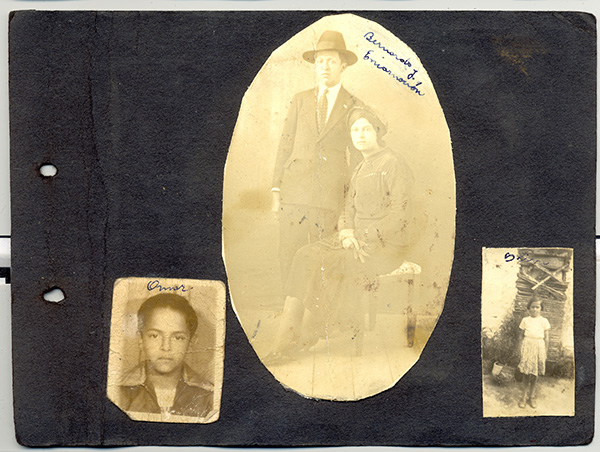 Bernardo y
Encarnación
Omar